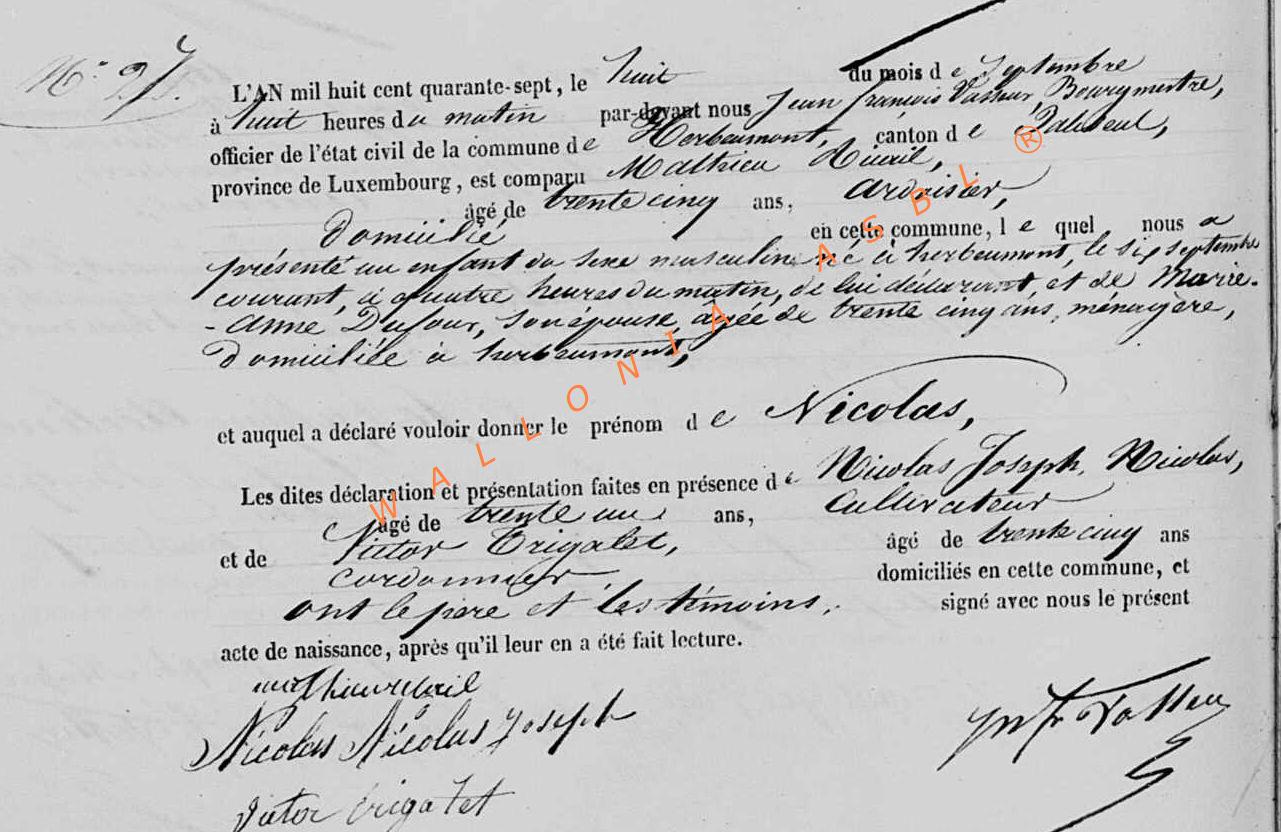 N° 27.
L'AN mil huit cent quarante-sept, le huit du mois de Septembre
à huit heures du matin par-devant nous Jean François Vasseur, Bourgmestre,
officier de l'état civil de la commune de Herbeumont, canton de Paliseul,
province de Luxembourg, est comparu Mathieu
âgé de trente cinq ans, ardoisier,
domicilié, en cette commune, le quel nous a
présenté un enfant du sexe masculin né à herbeumont, le six septembre
courant, à quatre heures du matin, de lui déclarant, et de Marie-
-Anne Dufour, son épouse, agée de trente cinq ans, ménagère,
domiciliée à herbeumont,
et auquel a déclaré vouloir donner le prénom de Nicolas,
Les dites déclaration et présentation faites en présence de Nicolas Joseph Nicolas,
âgé de trente un ans, cultivateur
et de Victor Trigalet, âgé de trente cinq ans
cordonnier, domiciliés en cette commune, et
ont le père et les témoins, signé avec nous le présent
acte de naissance, après qu'il leur en a été fait lecture.
Nicolas Nicolas Joseph
Victor trigalet
WALLONIA ASBL ®